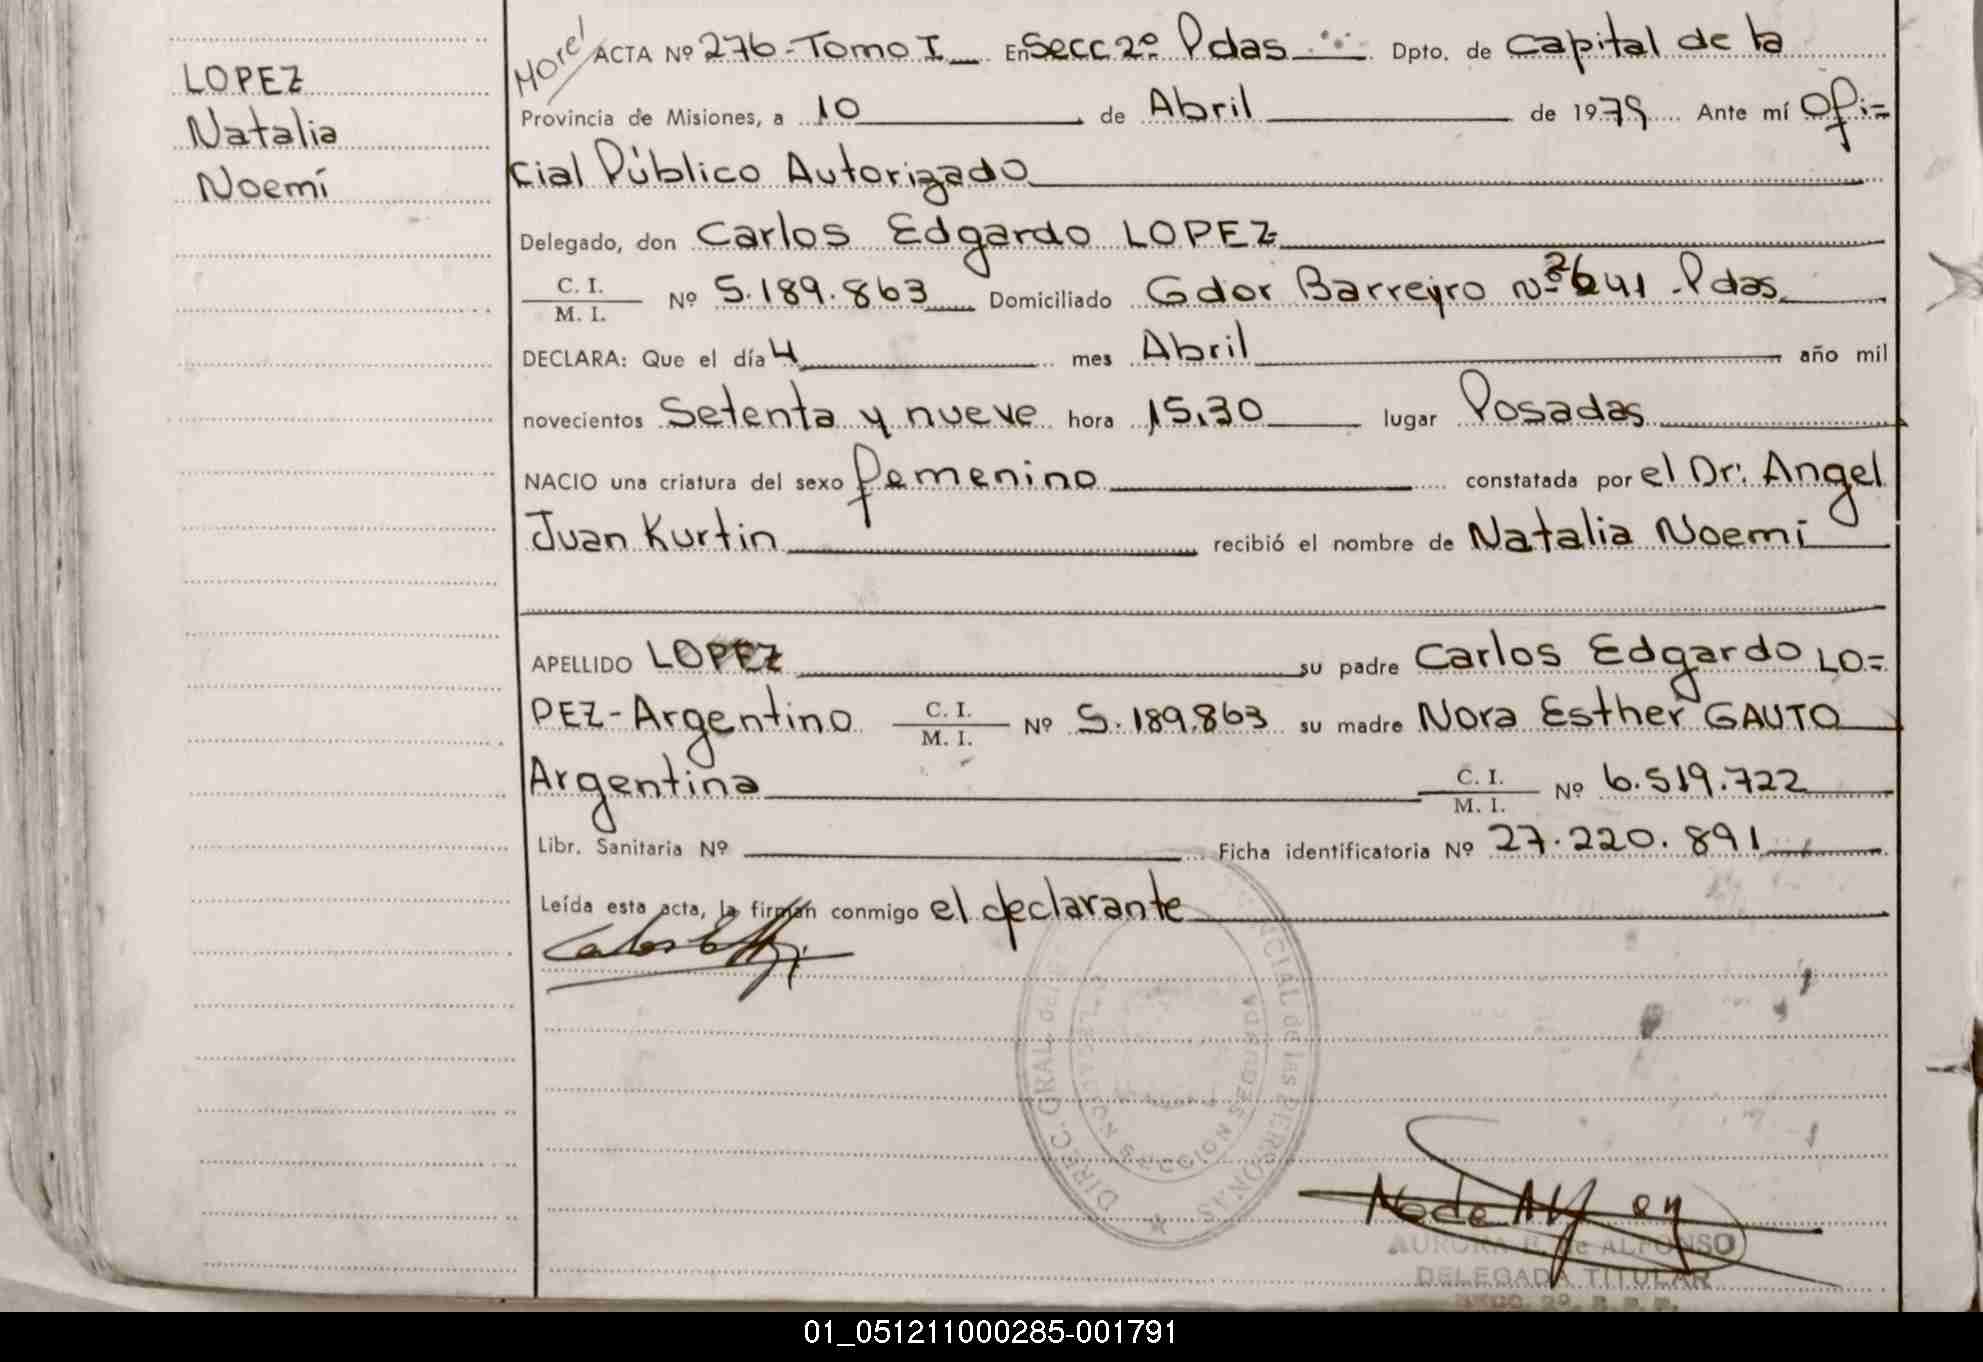 LOPEZ
Natalia
Noemí
Morel
ACTA Nº 276-Tomo I EnSecc 2º Pdas Dpto. de Capital de la
Provincia de Misiones, a 10 de Abril de 1979 Ante mí Ofi=
cial Público Autorizado
Delegado, don Carlos Edgardo LOPEZ
C. I.
M. I. Nº 5.189.863 Domiciliado Gdor Barreyro Nº 2641 - Pdas
DECLARA: Que el día 4 mes Abril año mil
novecientos Setenta y nueve hora 15,30 lugar Posadas
NACIO una criatura del sexo femenino constatada por el Dr: Angel
Juan Kurtin recibió el nombre de Natalia Noemí
APELLIDO LOPEZ su padre Carlos Edgardo LO=
PEZ-Argentino C. I. M. I. Nº 5.189.863 su madre Nora Esther GAUTO
Argentina C. I. M. I. Nº 6.519.722
Libr. Sanitaria Nº Ficha identificatoria Nº 27.220.891
Leída esta acta, la firman conmigo el declarante
DIREC. GRAL. de las PERSONAS
SECCION SEGUNDA
AURORA de ALFONSO
DELEGADA TITULAR
SECC. 2º.
01_051211000285-001791